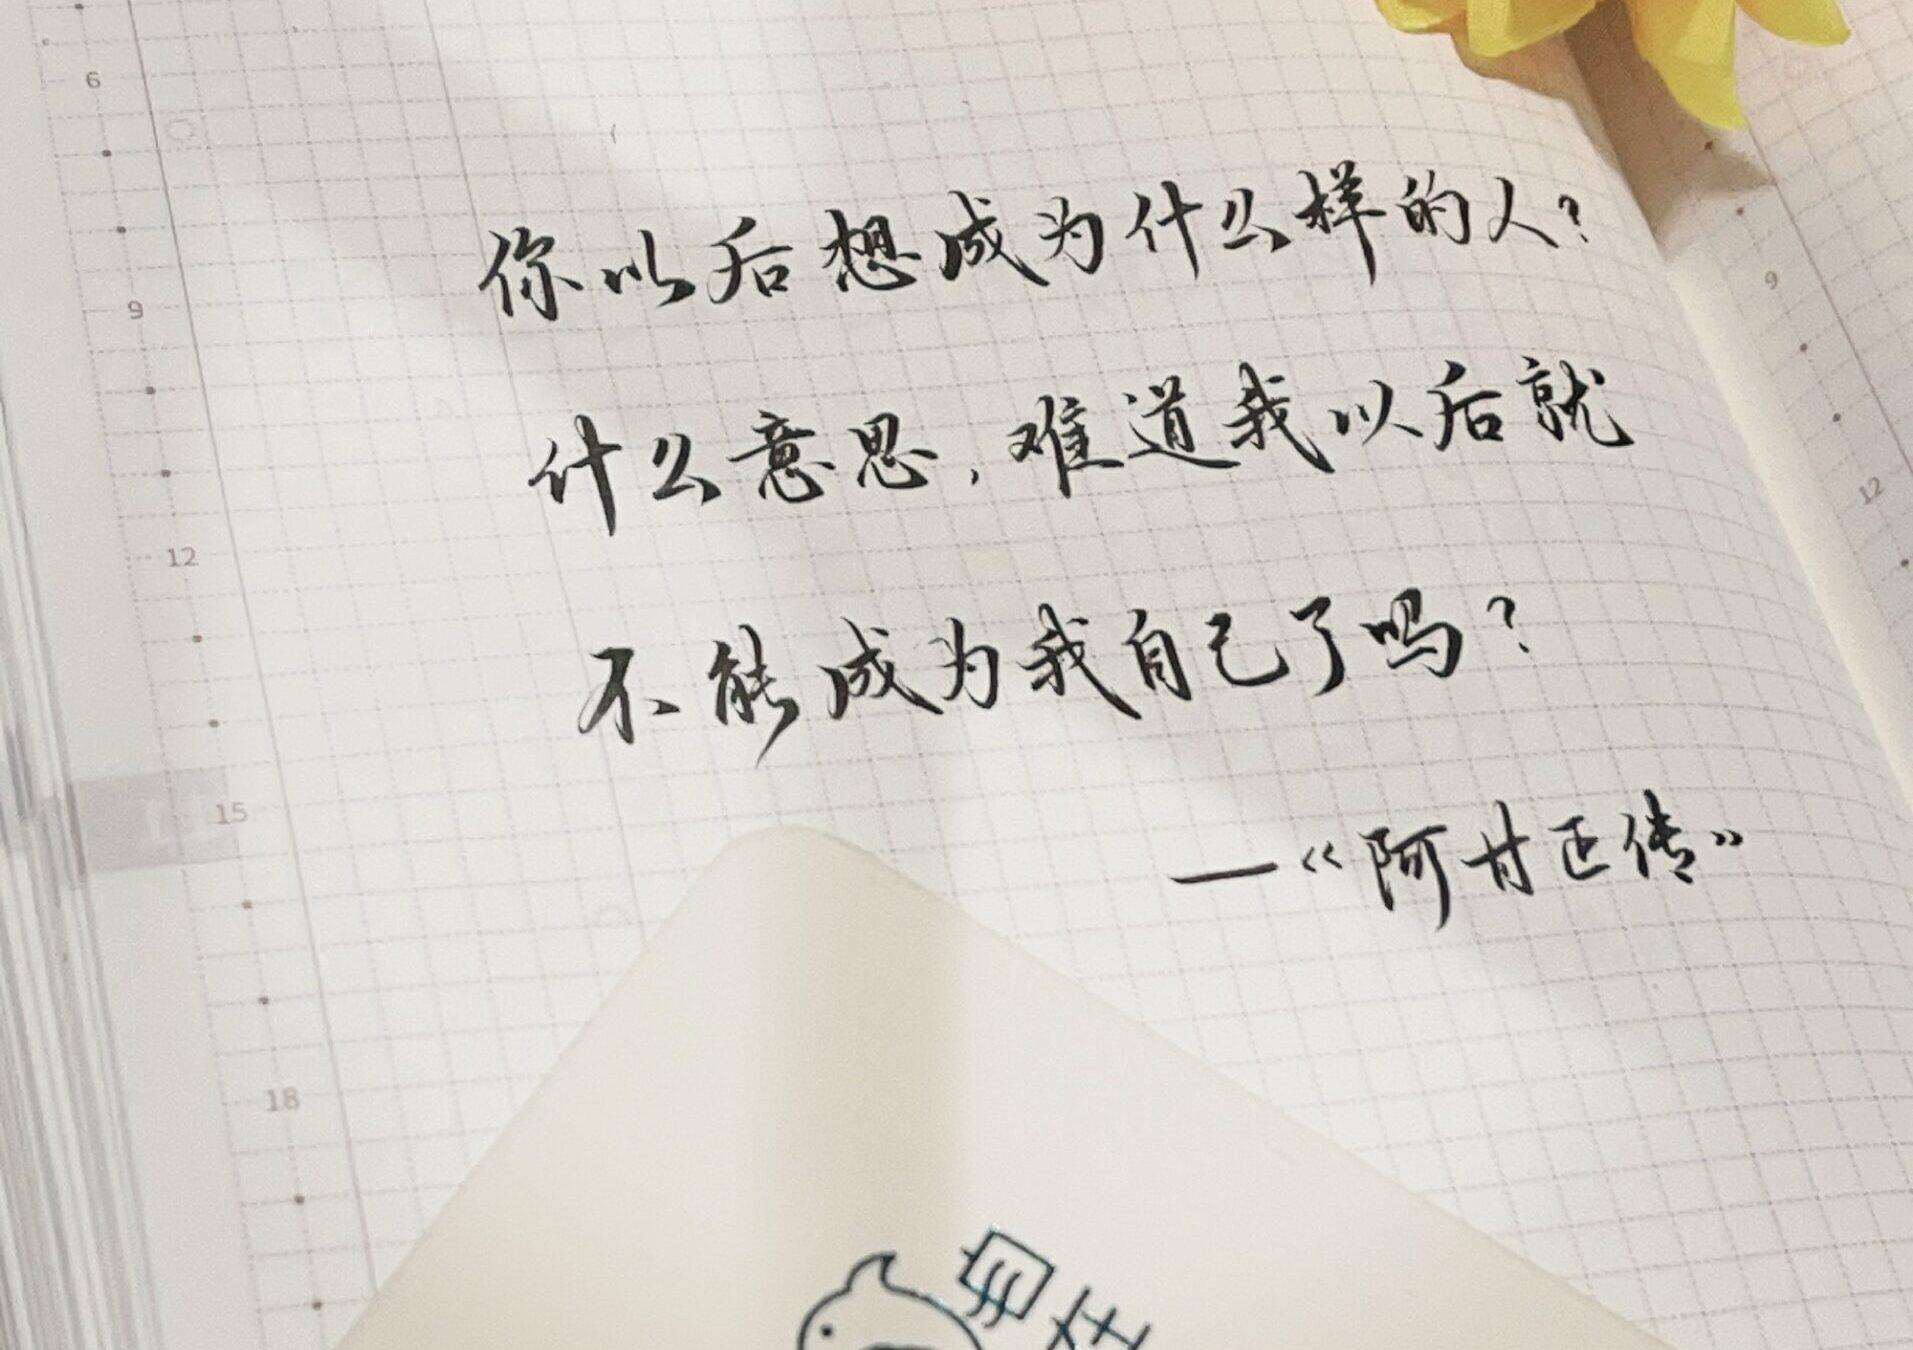 你以后想成为什么样的人？
什么意思，难道我以后就
不能成为我自己了吗？
—《阿甘正传》
6
9
12
15
18
9
12
自在